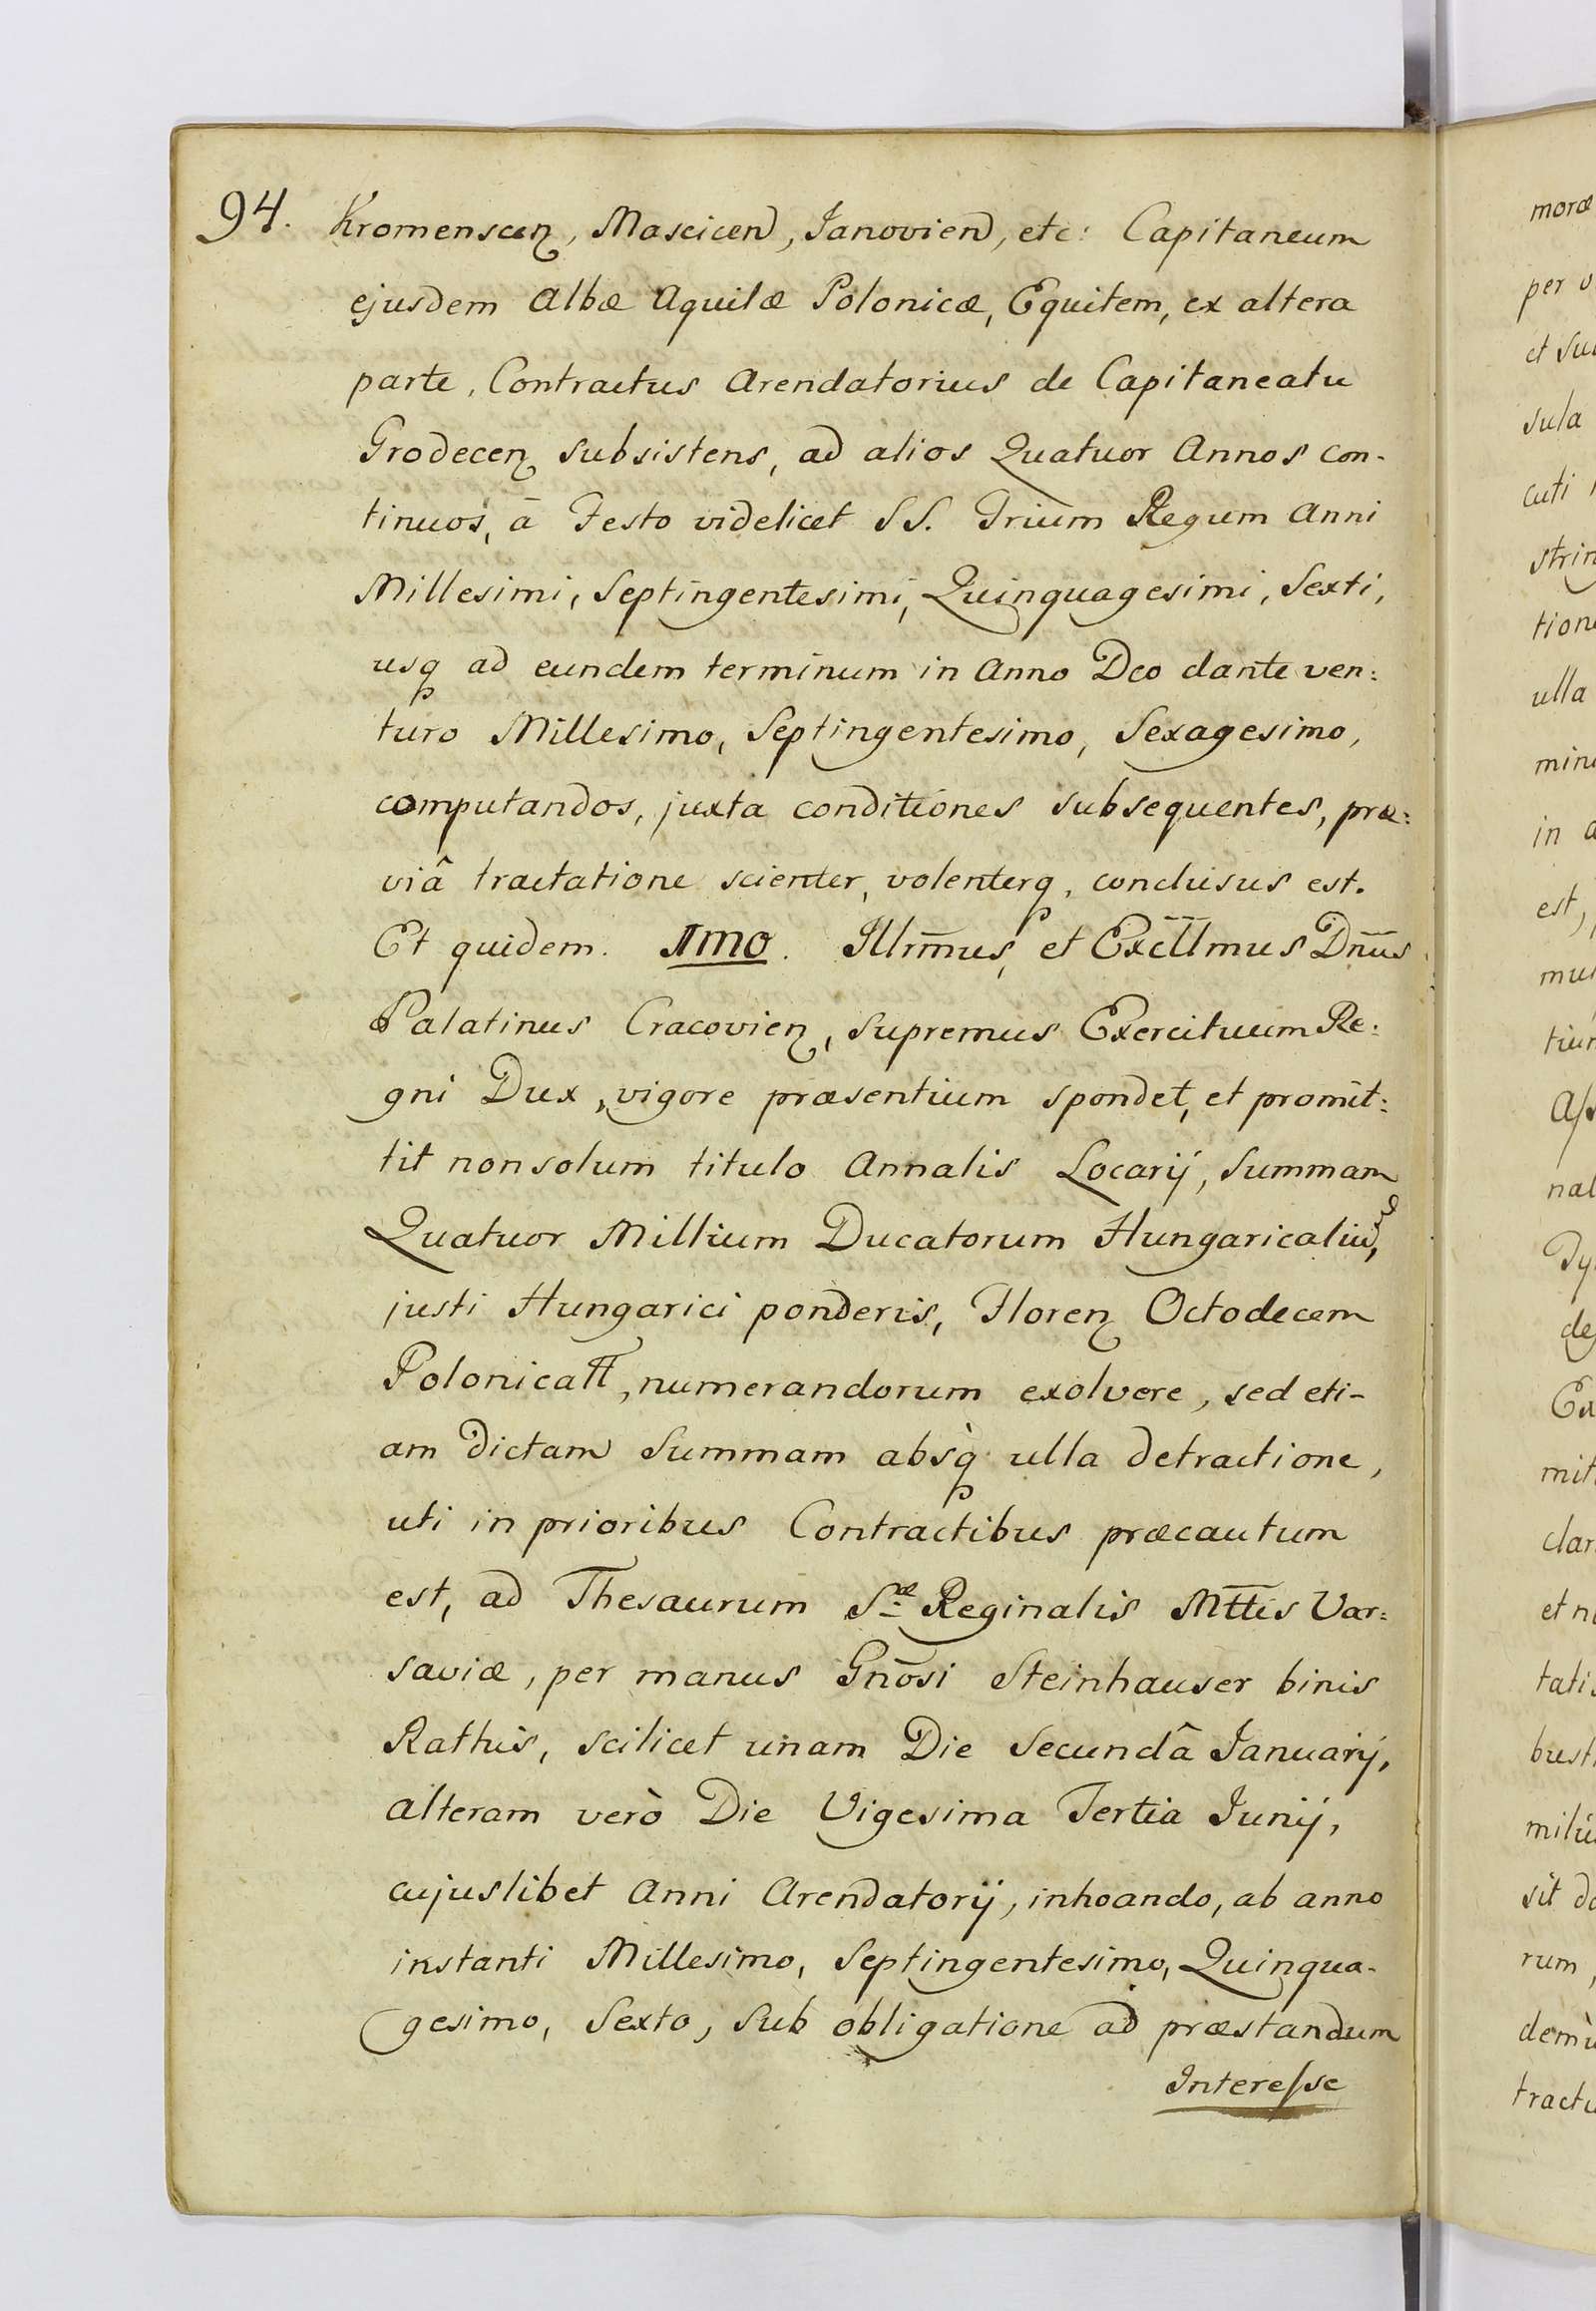 94. Kromenscen, Mascicen, Janovien, etc: Capitaneum
ejusdem Albæ Aquilæ Polonicæ, Equitem, ex altera
parte, Contractus Arendatorius de Capitaneatu
Grodecen subsistens, ad alios Quatuor Annos con-
tinuos, ā Festo videlicet SS. Trium Regum Anni
Millesimi, Septingentesimi, Quinquagesimi, Sexti,
usq ad eundem terminum in Anno Deo dante ven:
turo Millesimo, Septingentesimo, Sexagesimo,
computandos, juxta conditiones subsequentes, præ:
viâ tractatione scienter, volenterq, conclusus est.
Et quidem. Imo. Illm̄us, et Excllmus Dn̄us
Palatinus Cracovien, Supremus Exercituum Re:
gni Dux, vigore præsentium spondet, et promit:
tit non solum titulo Annalis Locarij, Summam
Quatuor Millium Ducatorum Hungaricaliu,
justi Hungarici ponderis, Floren Octodecem
Polonicall, numerandorum exolvere, sed eti-
am dictam Summam absq̀ ulla detractione,
uti in prioribus Contractibus præcautum
est, ad Thesaurum Sæ Reginalis Mttis Var:
saviæ, per manus Gnōsi Steinhauser binis
Rathis, scilicet unam Die Secundâ Januarij,
alteram verò Die Vigesima Tertia Junij,
cujuslibet Anni Arendatorij, inhoando, ab anno
instanti Millesimo, Septingentesimo, Quinqua-
gesimo, Sexto, Sub obligatione ad præstandum
Interesse
moræ
per
et
sula
cuti
strin
tione
ulla
min
in
est,
mus
tiun
Ass
nal
de
Ex
mit
clar
et
tatis
bust
sit
rum
tractu